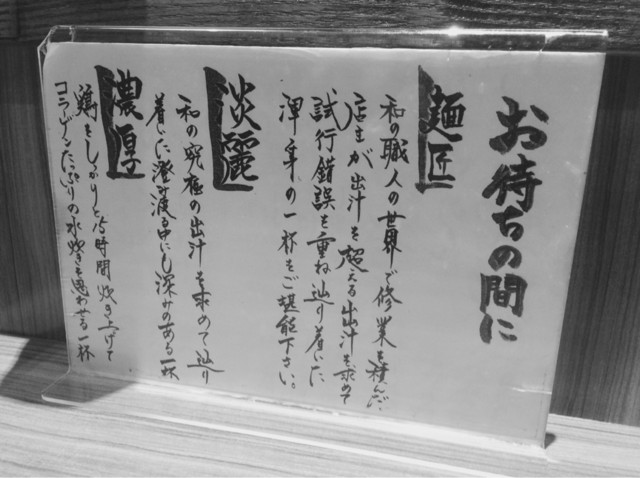 お待ちの間に
麺匠
和の職人の世界で修業を積んだ、
店主が出汁を超える出汁を求めて
試行錯誤を重ね辿り着いた
渾身の一杯をご堪能下さい。
淡麗
和の究極の出汁を求めて辿り
着いた澄み渡る中にし深みのある一杯
濃厚
鶏をしっかりと15時間炊き上げて
コラーゲンたっぷりの水炊きを思わせる一杯